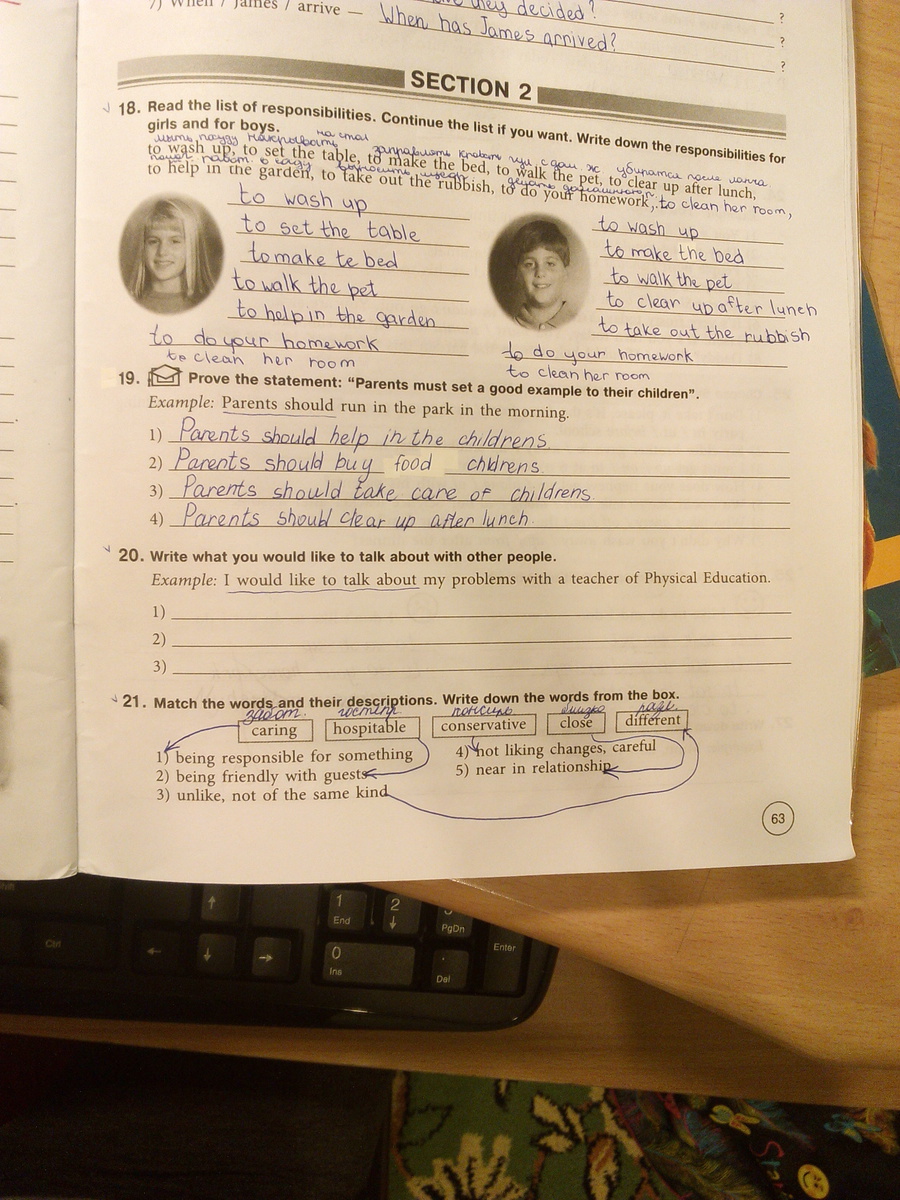 they decided? ?
7) When / James / arrive — When has James arrived? ?
?
SECTION 2
18. Read the list of responsibilities. Continue the list if you want. Write down the responsibilities for
girls and for boys.
на стол
мыть посуду накрывать заправлять кровать убираться после ланча
to wash up, to set the table, to make the bed, to walk the pet, to clear up after lunch,
to help in the garden, to take out the rubbish, to do your homework, to clean her room,
to wash up
to set the table
to make te bed
to walk the pet
to help in the garden
to do your homework
to clean her room
to wash up
to make the bed
to walk the pet
to clear up after lunch
to take out the rubbish
to do your homework
to clean her room
19. Prove the statement: “Parents must set a good example to their children”.
Example: Parents should run in the park in the morning.
1) Parents should help in the childrens
2) Parents should buy food childrens
3) Parents should take care of childrens
4) Parents should clear up after lunch.
20. Write what you would like to talk about with other people.
Example: I would like to talk about my problems with a teacher of Physical Education.
1)
2)
3)
21. Match the words and their descriptions. Write down the words from the box.
caring hospitable conservative close different
1) being responsible for something
2) being friendly with guests
3) unlike, not of the same kind
4) not liking changes, careful
5) near in relationship
63
Shift
Ctrl
↑
← ↓ →
1 End
2 ↓
3 PgDn
0 Ins
. Del
Enter